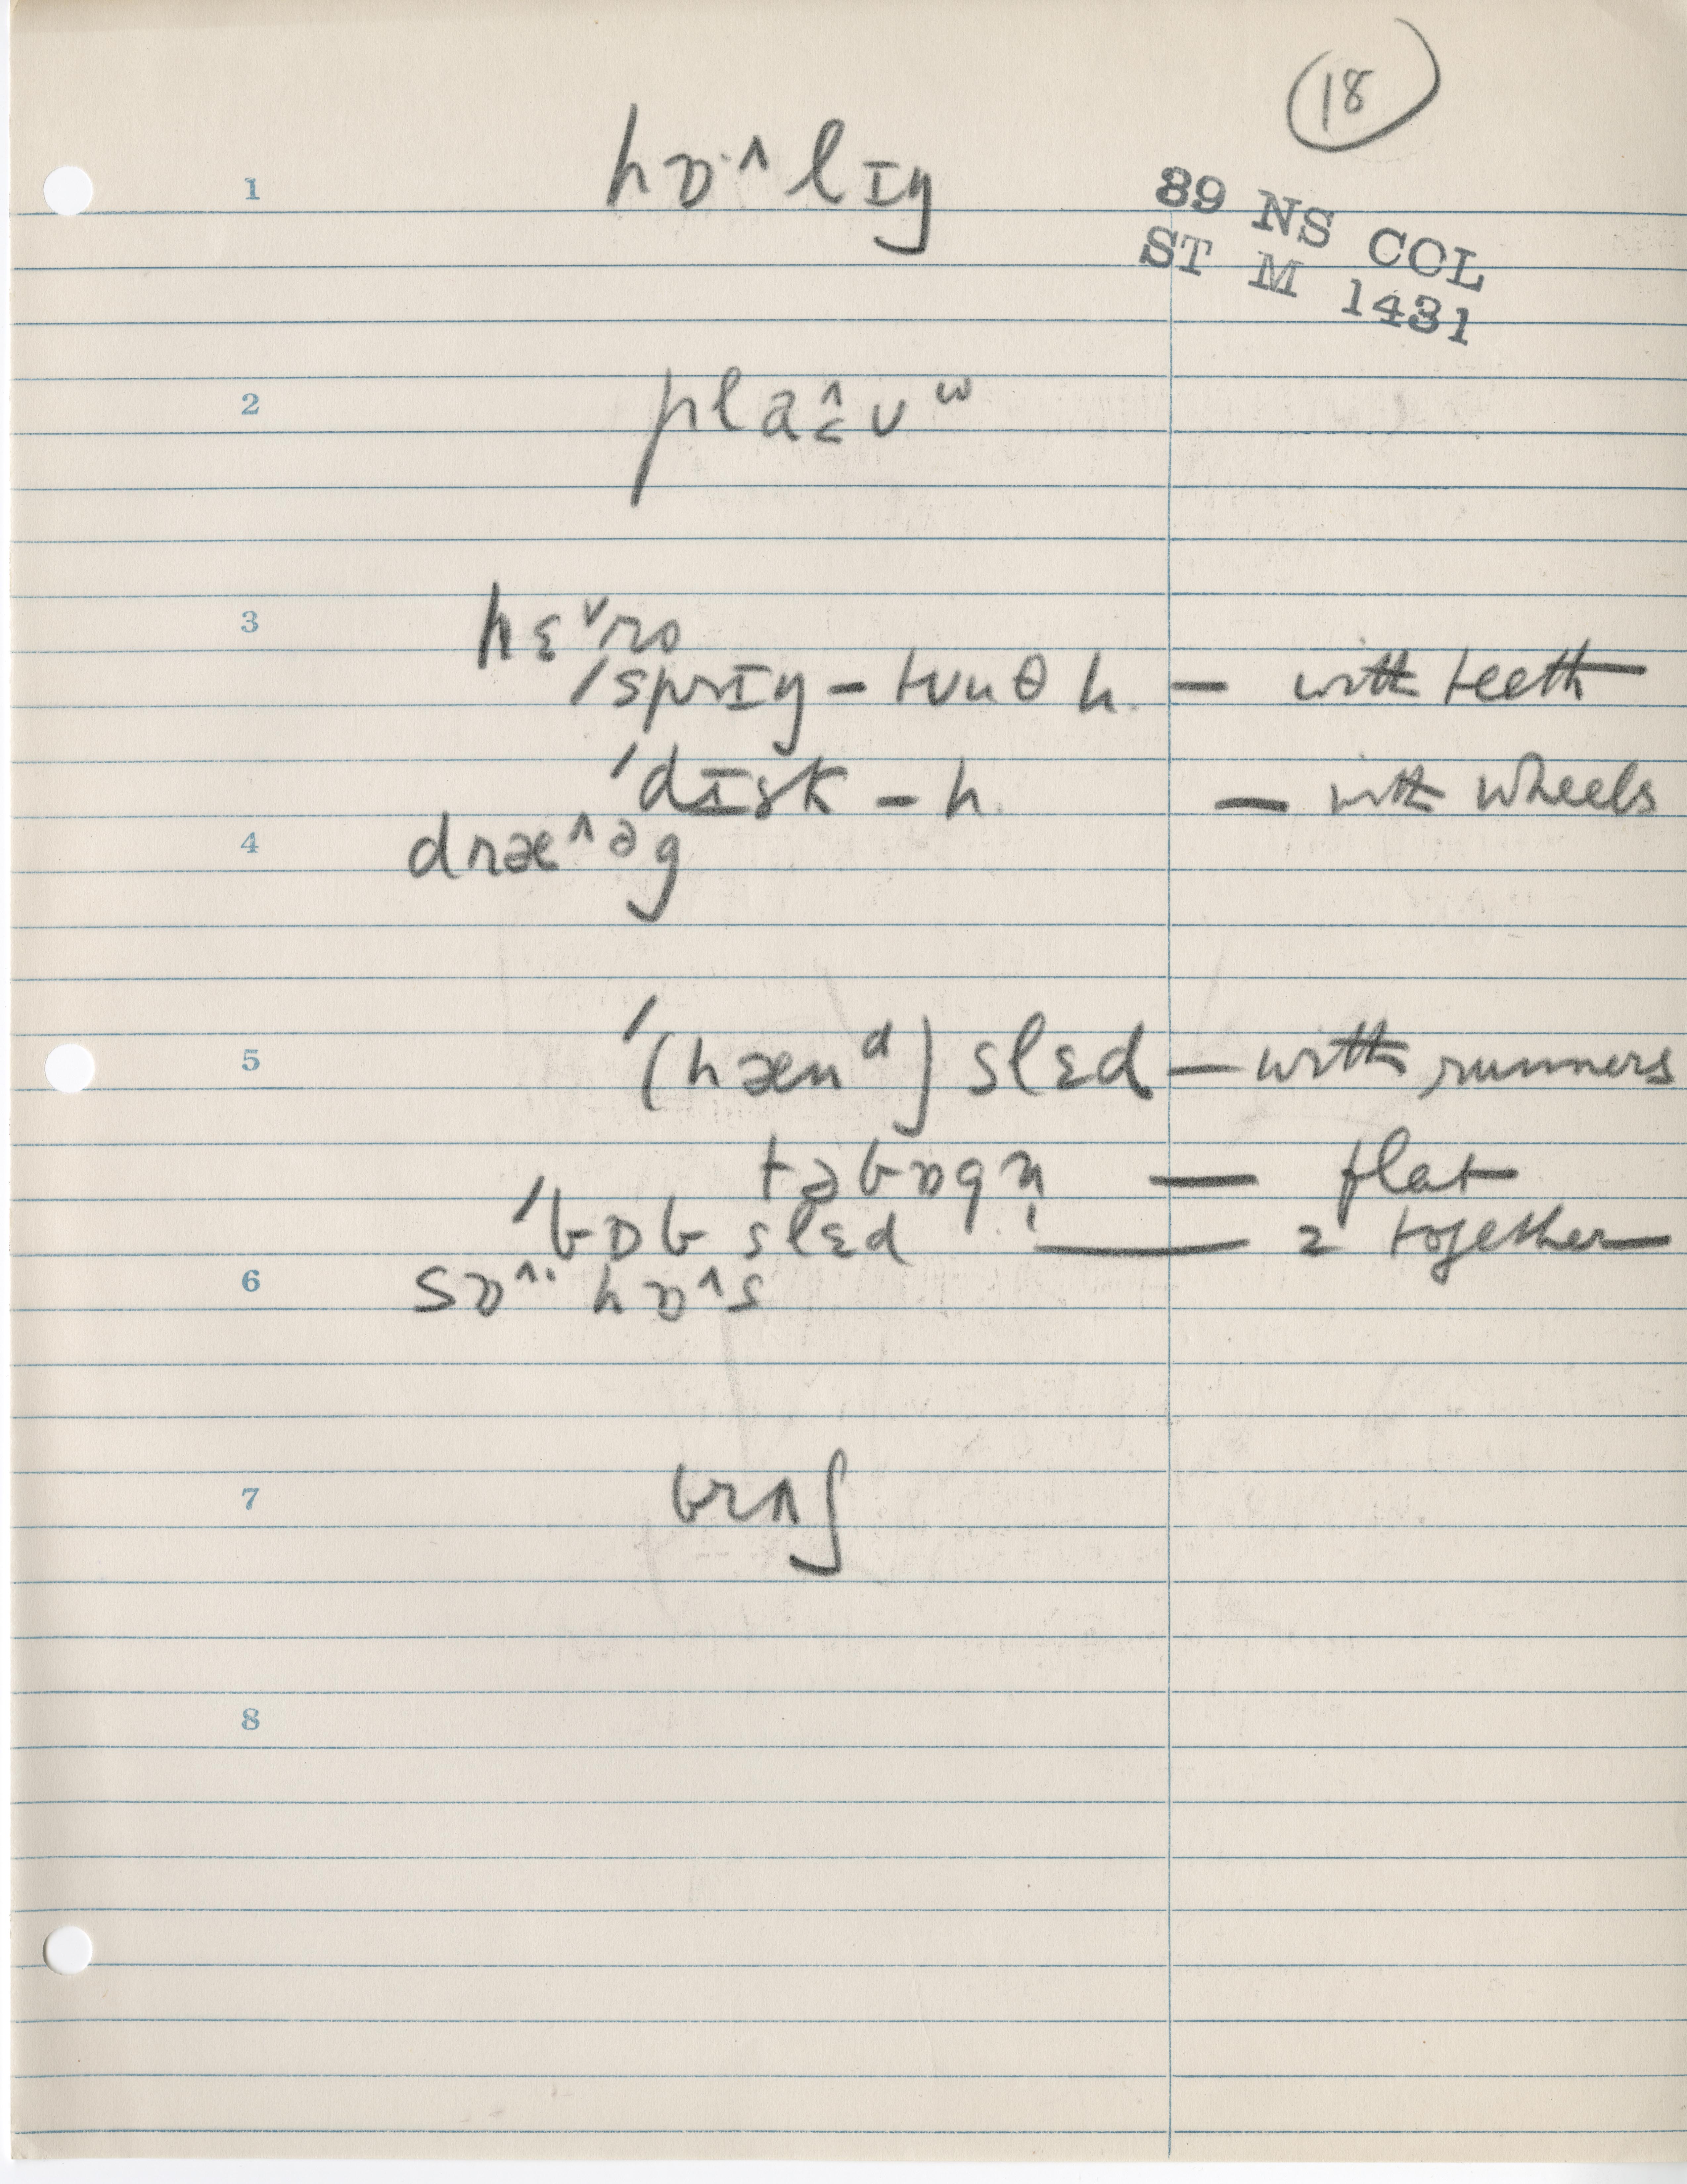 18
89 NS COL
ST M 1431
1 hɒ˄lɪŋ
2 plaʊ̯ʷ
3 hɛ˅ro
ˈsprɪŋ – tuuθ h. — with teeth
ˈdɪsk – h. — with wheels
4 dræ˄ᵊg
5 ˈ(hænᵈ) slɛd — with runners
təbɒgn̩ — flat
ˈbɒb slɛd — 2 together
6 sɒ˄· hɒ˄s
7 brʌʃ
8